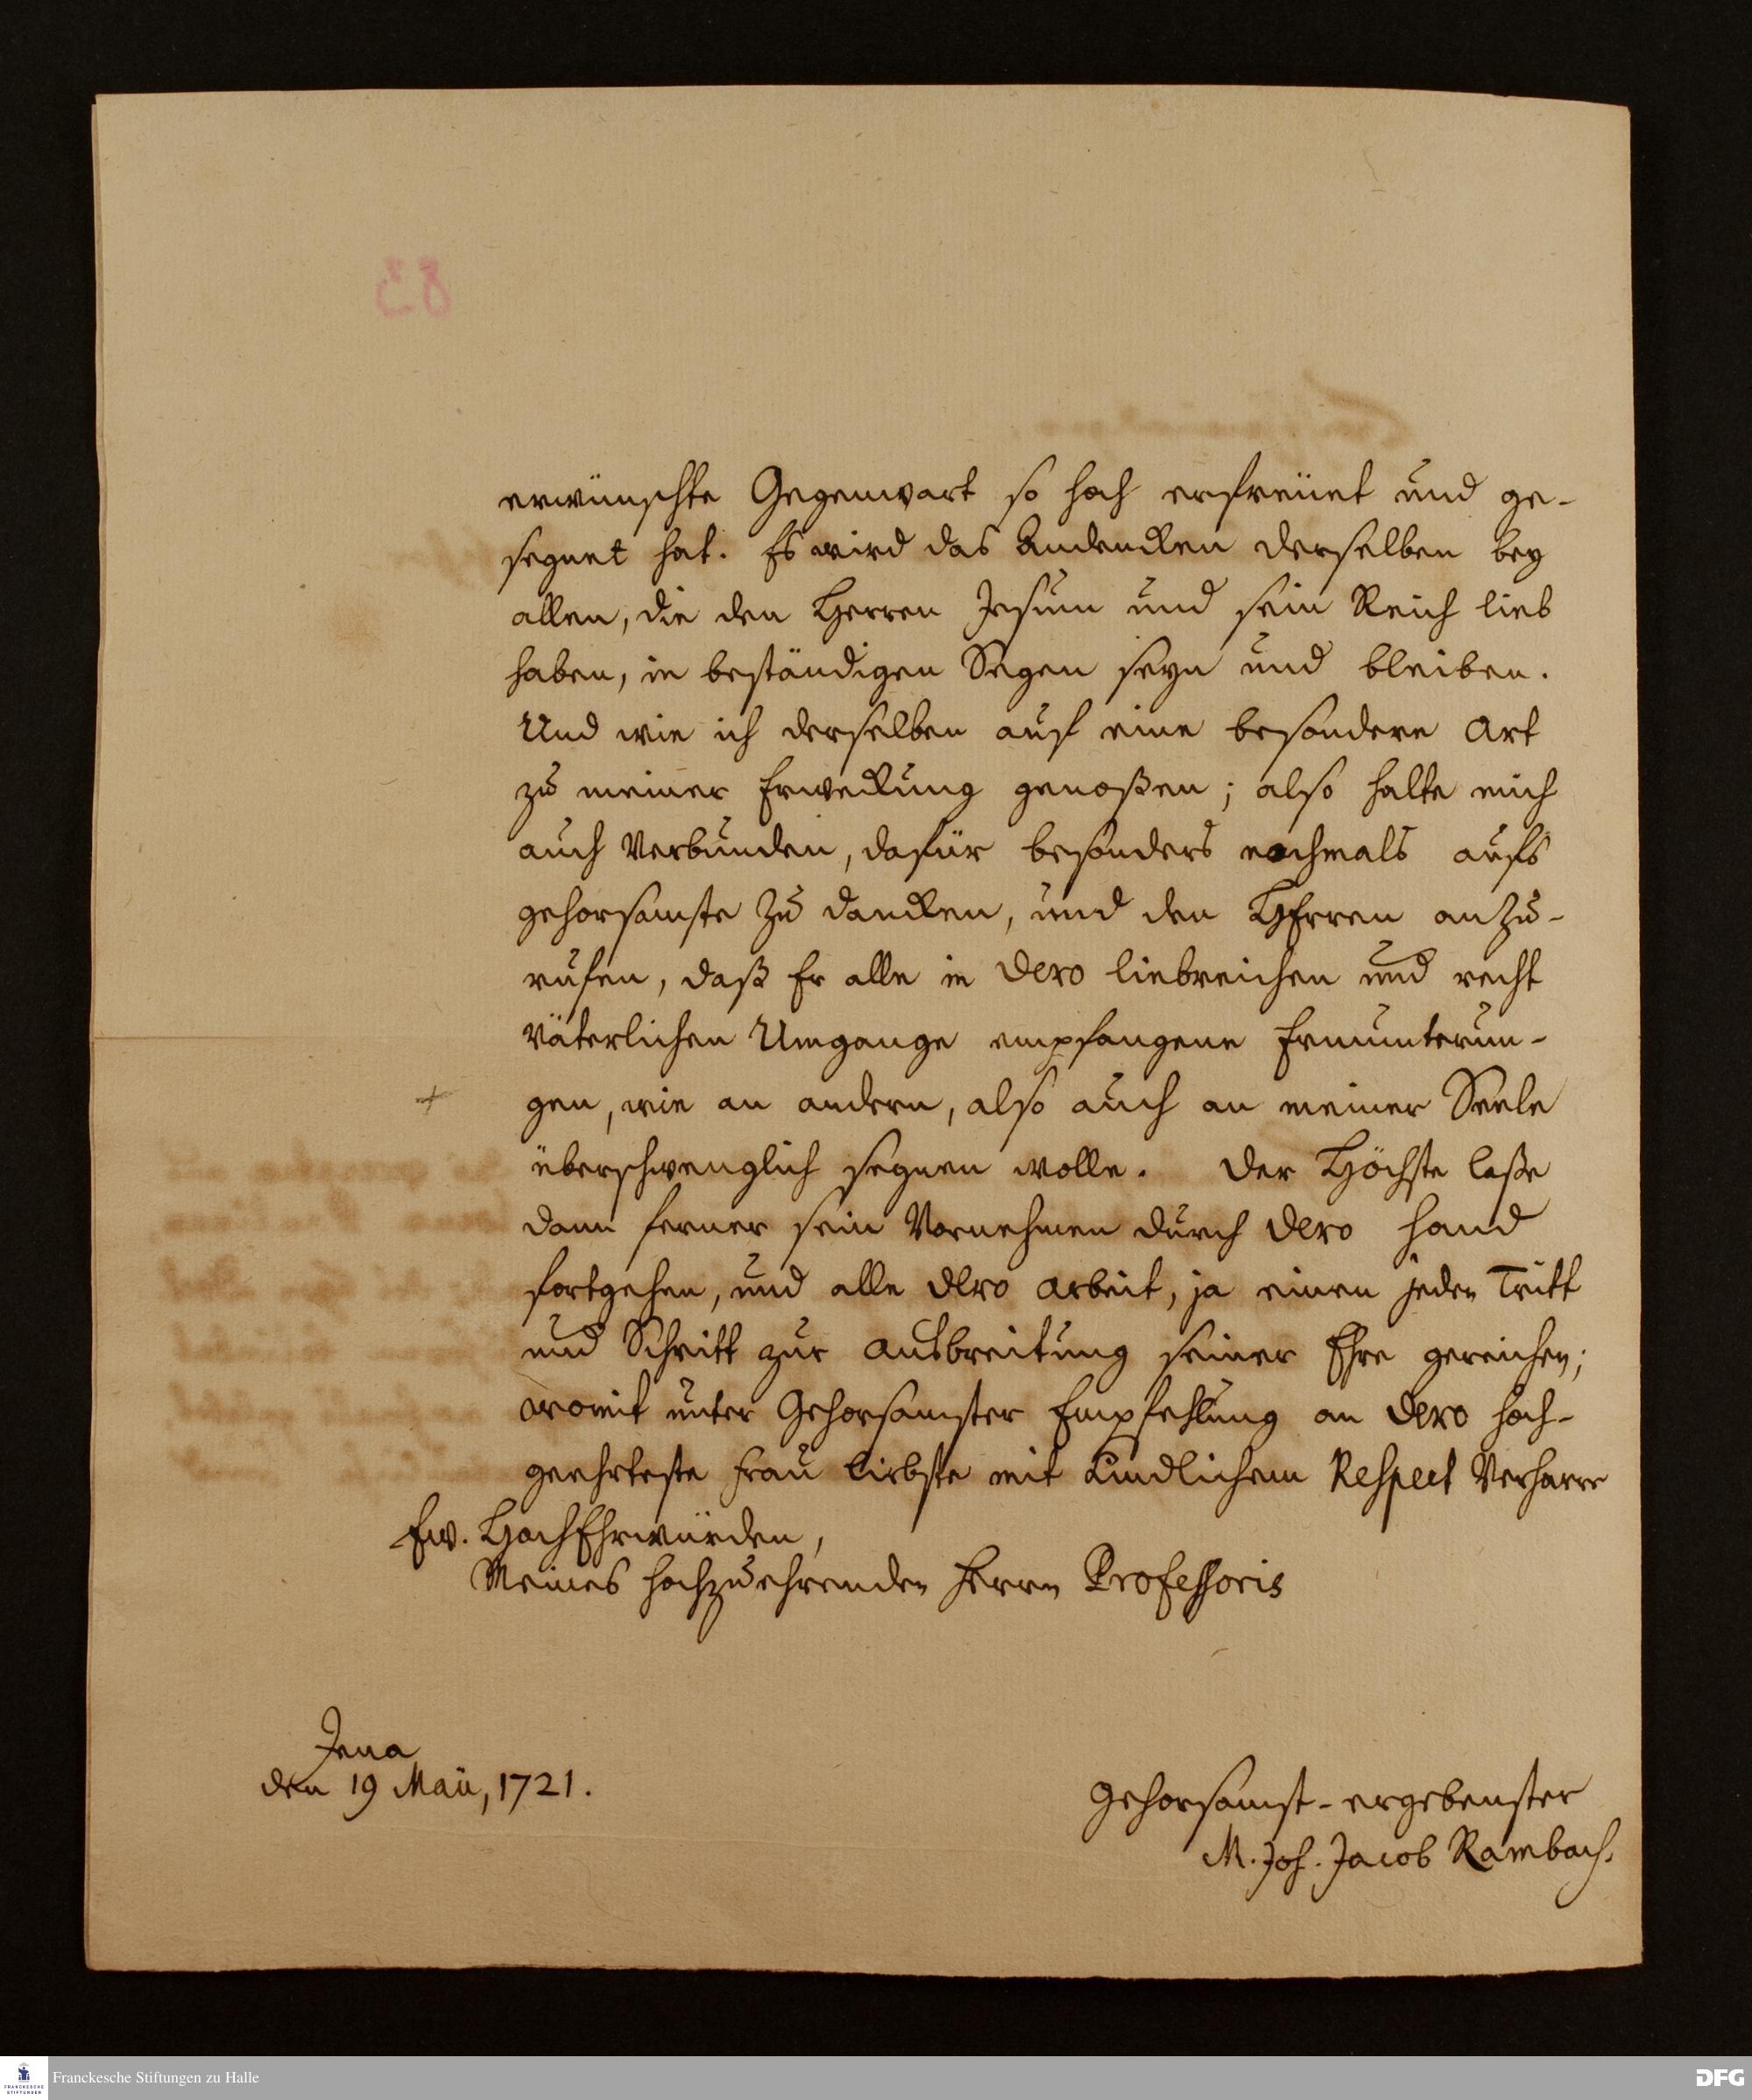 erwünschte Gegenwart so hoch erfreüet und ge-
segnet hat. Es wird das Andencken derselben bey
allen, die den Herren Jesum und sein Reich lieb
haben, in beständigen Segen seyn und bleiben.
Und wie ich derselben auf eine besondere Art
zu meiner Erweckung genoßen; also halte mich
auch verbunden, dafür besonders nochmals aufs
gehorsamste zu dancken, und den HErren anzu-
rufen, daß Er alle in Dero liebreichen und recht
väterlichen Umgange empfangene Ermunterun-
gen, wie an andern, also auch an meiner Seele
überschwenglich segnen wolle. Der Höchste laße
dann ferner sein Vornehmen durch Dero Hand
fortgehen, und alle Dero Arbeit, ja einen jeden Tritt
und Schritt zur Ausbreitung seiner Ehre gereichen;
womit unter Gehorsamster Empfehlung an Dero hoch-
geehrteste Frau Liebste mit Kindlichem Respect verharre
Ew. HochEhrwürden,
Meines hochzuehrenden Herrn Professoris
Jena
den 19 Maii, 1721.
gehorsamst-ergebenster
M. Joh. Jacob Rambach.
Franckesche Stiftungen zu Halle
DFG